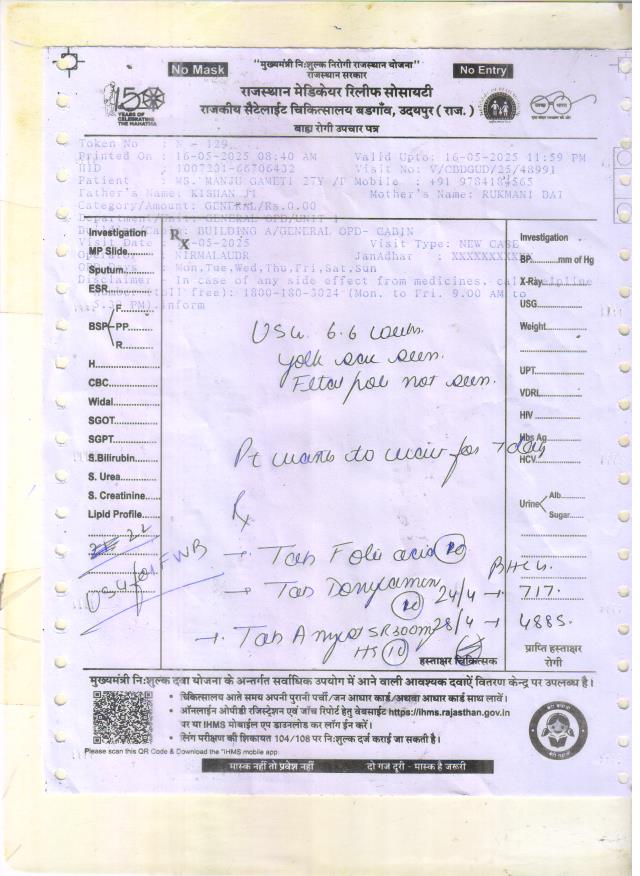 No Mask
"मुख्यमंत्री निःशुल्क निरोगी राजस्थान योजना"
No Entry
राजस्थान सरकार
राजस्थान मेडिकेयर रिलीफ सोसायटी
राजकीय सैटेलाईट चिकित्सालय बडगाँव, उदयपुर ( राज. )
बाह्य रोगी उपचार पत्र
150
YEARS OF
CELEBRATING
THE MAHATMA
Token No : N - 129
Printed On : 16-05-2025 08:40 AM Valid Upto: 16-05-2025 11:59 PM
HID : 1007201-66706432 Visit No: V/CBDGUD/25/48991
Patient : MS. MANJU GAMETI 27Y /F Mobile : +91 9784184565
Father's Name: KISHAN JI Mother's Name: RUKMANI BAI
Category/Amount: GENERAL/Rs.0.00
GENERAL OPD/UNIT 1
BUILDING A/GENERAL OPD- CABIN
Visit Date : -05-2025 Visit Type: NEW CASE
NIRMALAUDR JanAadhar : XXXXXXXX
Mon,Tue,Wed,Thu,Fri,Sat,Sun
Disclaimer : In case of any side effect from medicines, call helpline
number(toll free): 1800-180-3024 (Mon. to Fri. 9.00 AM to
5.30 PM).inform
Investigation
MP Slide
Sputum
ESR
BSP F
PP
R
H
CBC
Widal
SGOT
SGPT
S.Bilirubin
S. Urea
S. Creatinine
Lipid Profile
22
USG for FWB
Rx
USG 6.6 weeks.
yolk sac seen.
Fetal pole not seen.
Pt wants to wait for 7 days
Rx
→ Tab Folic acid 10
→ Tab Donyamin
10
→ Tab SR 300mg
HS 10
BHCG.
24/4 → 717.
28/4 → 4885.
Investigation
BP mm of Hg
X-Ray
USG
Weight
UPT
VDRL
HIV
Hbs Ag
HCV
Urine Alb.
Sugar
हस्ताक्षर चिकित्सक
प्राप्ति हस्ताक्षर
रोगी
मुख्यमंत्री निःशुल्क दवा योजना के अन्तर्गत सर्वाधिक उपयोग में आने वाली आवश्यक दवाऐं वितरण केन्द्र पर उपलब्ध है।
• चिकित्सालय आते समय अपनी पुरानी पर्ची/जन आधार कार्ड/अथवा आधार कार्ड साथ लावें।
• ऑनलाईन ओपीडी रजिस्ट्रेशन एवं जाँच रिपोर्ट हेतु वेबसाईट https://ihms.rajasthan.gov.in
पर या IHMS मोबाईल एप डाउनलोड कर लॉग ईन करें।
• लिंग परीक्षण की शिकायत 104/108 पर निःशुल्क दर्ज कराई जा सकती है।
Please scan this QR Code & Download the "IHMS mobile app
मास्क नहीं तो प्रवेश नहीं
दो गज दूरी - मास्क है जरूरी